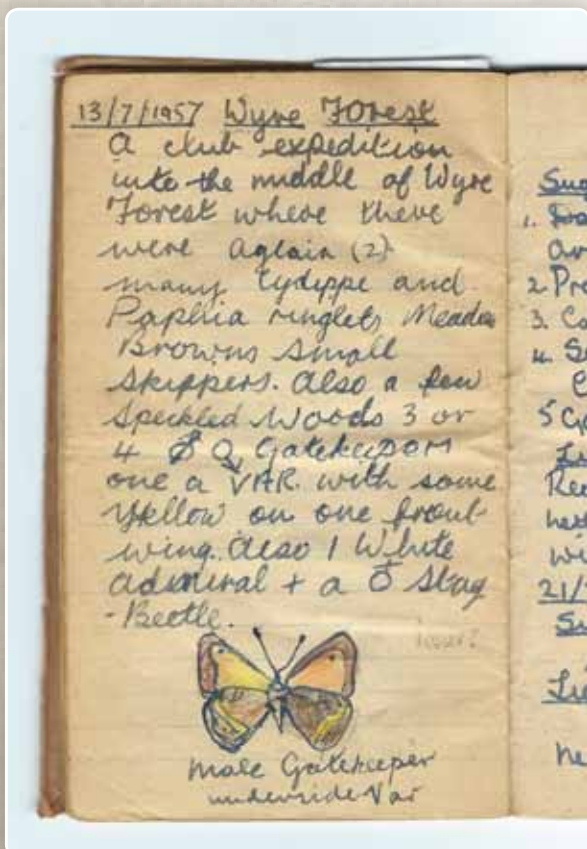 13/7/1957 Wyre Forest
A club expedition
into the middle of Wyre
Forest where there
were Aglaia (2)
many Cydippe and
Paphia ringlets Meadow
Browns Small
Skippers. Also a few
Speckled Woods 3 or
4 ♂ ♀ Gatekeepers
one a VAR. with some
Yellow on one front
wing. Also 1 White
admiral + a ♂ Stag
-Beetle.
lesser?
Male Gatekeeper
underside Var
1.
2. Pre
3. Co
4. S
5
21/
he